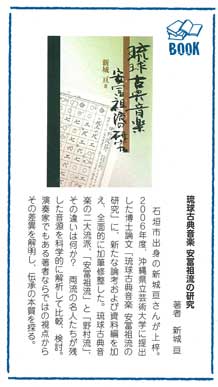 BOOK
琉球古典音楽
安冨祖流の研究
新城 亘 著
琉球古典音楽 安冨祖流の研究
著者 新城 亘
石垣市出身の新城亘さんが上梓。
2006年度、沖縄県立芸術大学に提出
した博士論文「琉球古典音楽 安冨祖流の
研究」に、新たな論考および資料編を加
え、全面的に加筆修整した。琉球古典音
楽の二大流派、「安冨祖流」と「野村流」。
その違いは何か？ 両流の名人たちが残
した音源を科学的に解析して比較、検討。
演奏家でもある著者ならではの視点から
その差異を解明し、伝承の本質を探る。